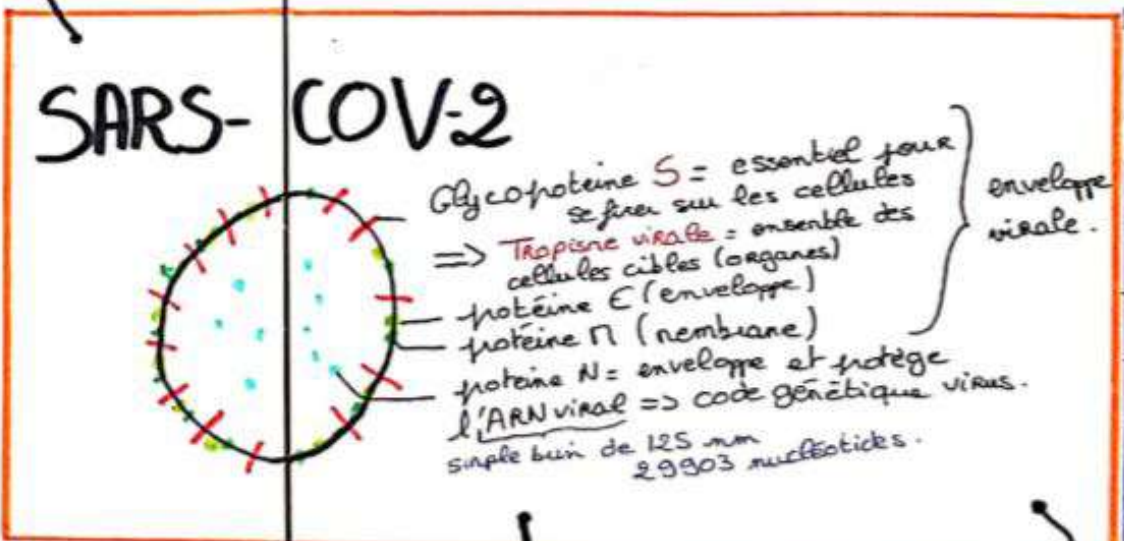 SARS-COV-2
Glycopoteine S = essentiel pour
se fixer sur les cellules
=> Tropisme virale = ensemble des
cellules cibles (organes)
protéine E (enveloppe)
protéine M (membrane)
enveloppe
virale.
poteine N = enveloppe et protège
l'ARN viral => code génétique virus.
simple brin de 125 nm
29903 nucléotides.